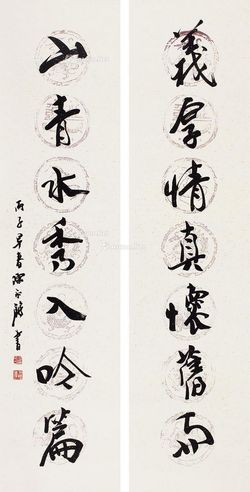 義厚情真懷舊雨
山青水秀入吟篇
丙子早春 書